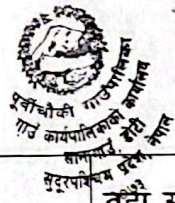 पूर्वीचौकी गाउँपालिका
गाउँ कार्यपालिकाको कार्यालय
डोटी
सुदूरपश्चिम प्रदेश, नेपाल